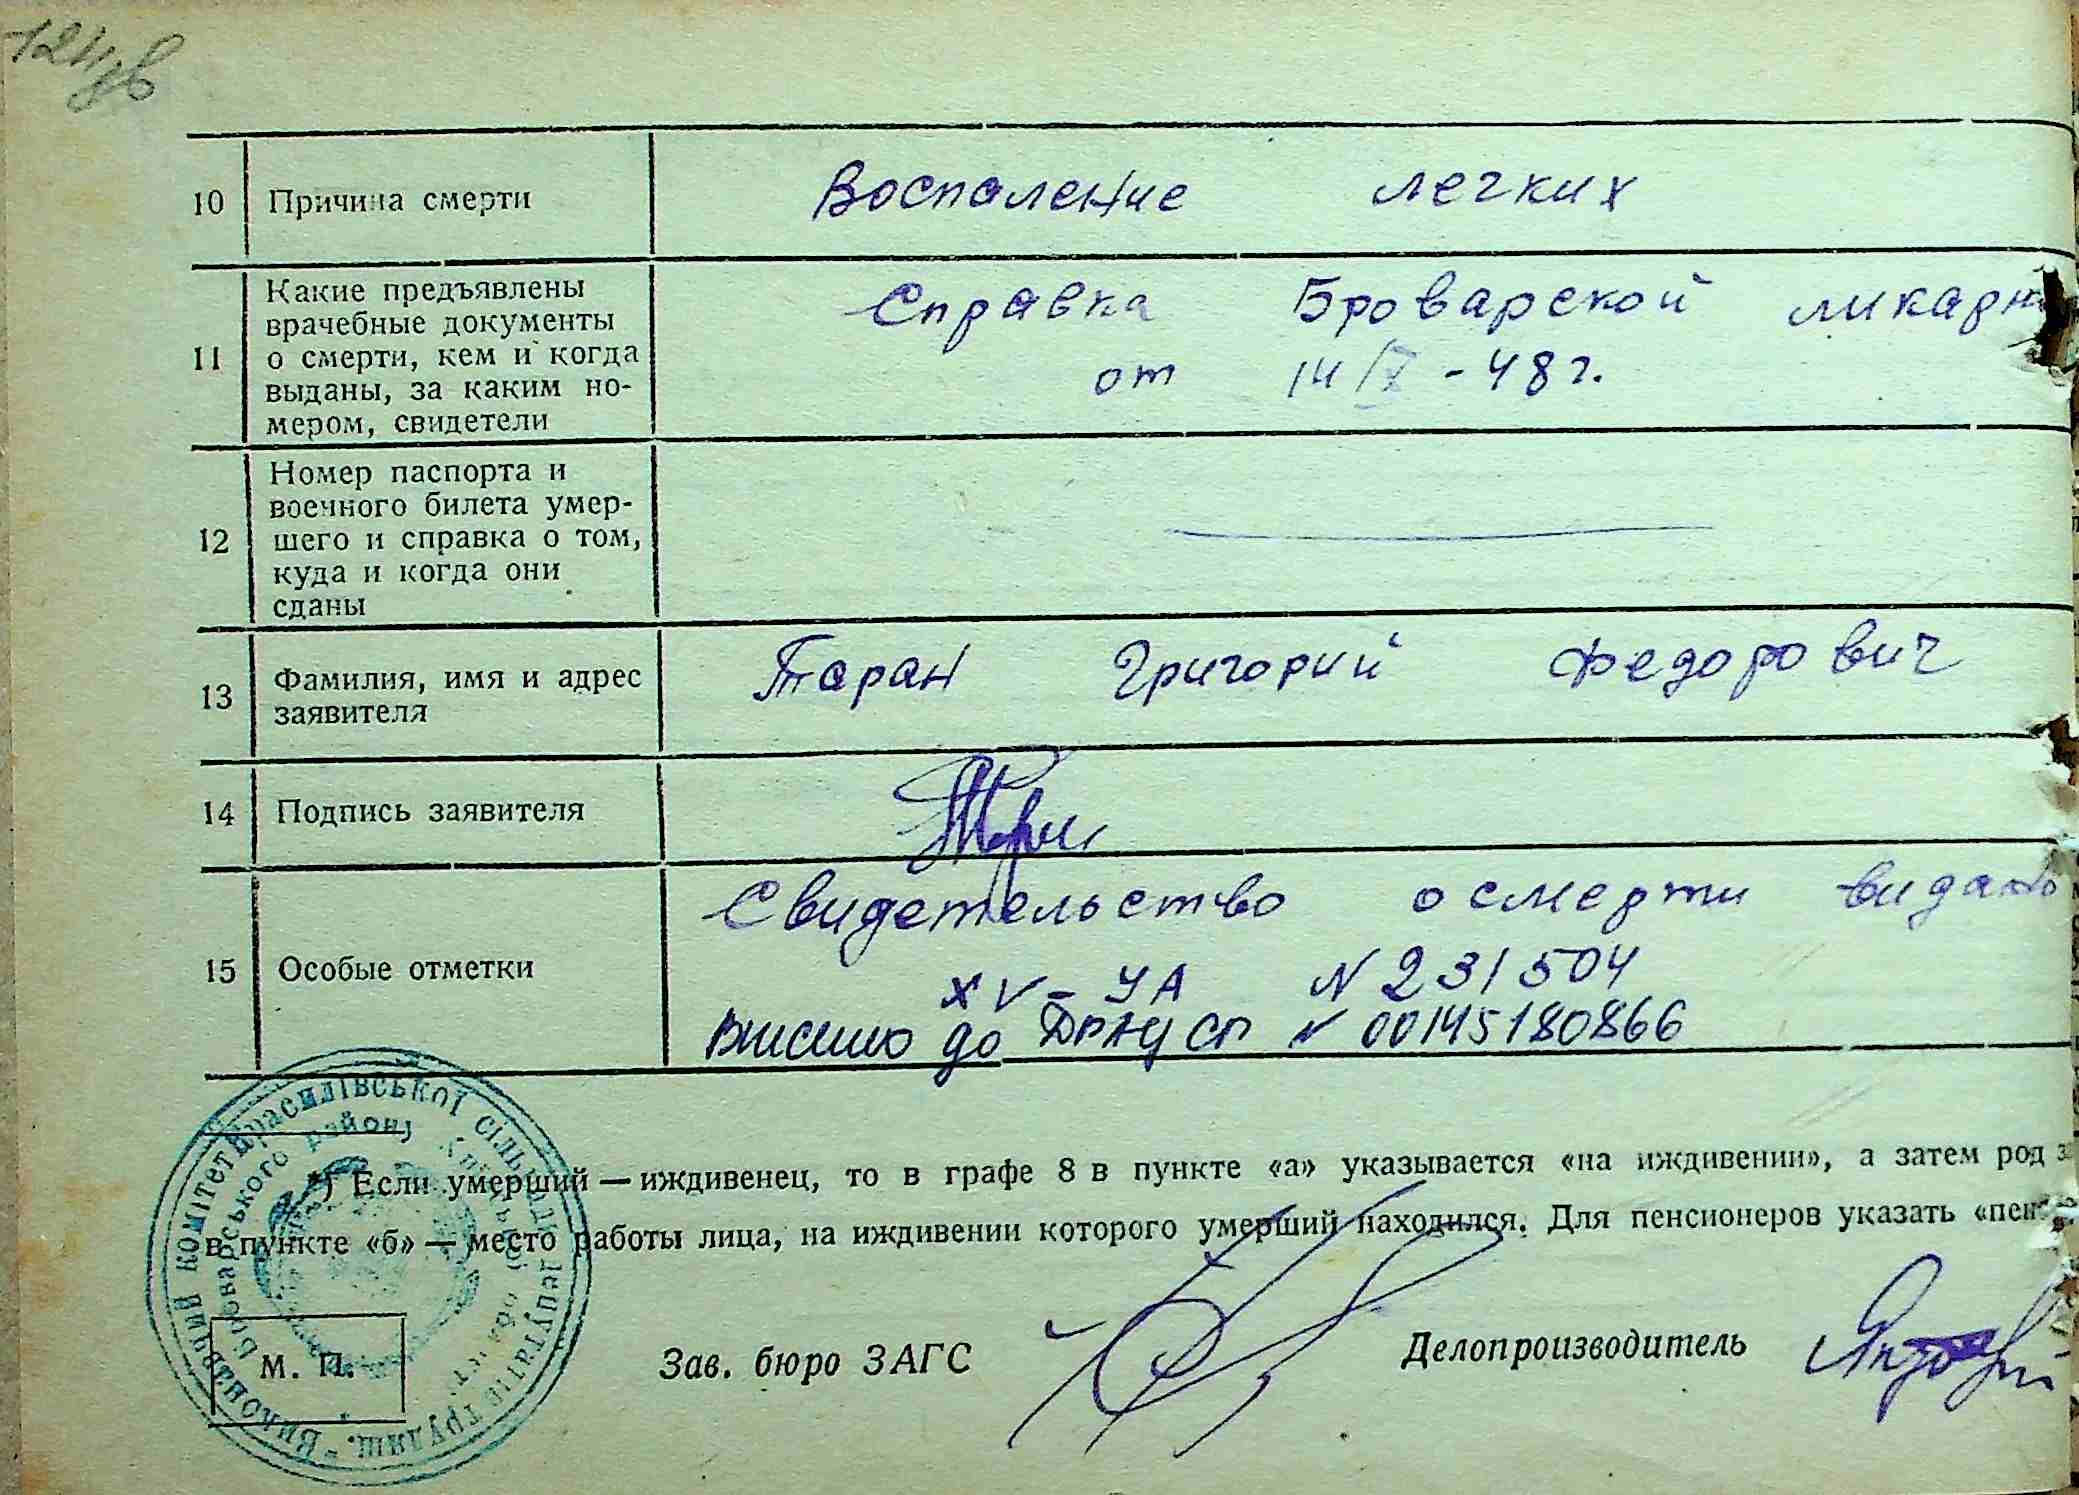 10 Причина смерти Воспаление легких
11 Какие предъявлены врачебные документы о смерти, кем и когда выданы, за каким но-мером, свидетели
Справка Броварской ликарн
от 14/X - 48 г.
12 Номер паспорта и военного билета умер-шего и справка о том, куда и когда они сданы
13 Фамилия, имя и адрес заявителя Таран Григорий Федорович
14 Подпись заявителя
15 Особые отметки
Свидетельство о смерти видано
XV - УА N 231504
до ДРАЦСГ N 00145180866
*) Если умерший — иждивенец, то в графе 8 в пункте «а» указывается «на иждивении», а затем род
в пункте «б» — место работы лица, на иждивении которого умерший находился. Для пенсионеров указать «пен
М. П.
Зав. бюро ЗАГС
Делопроизводитель
Виконавчий комітет Красилівської сільради депутатів трудящ.
Броварського району Київської област.